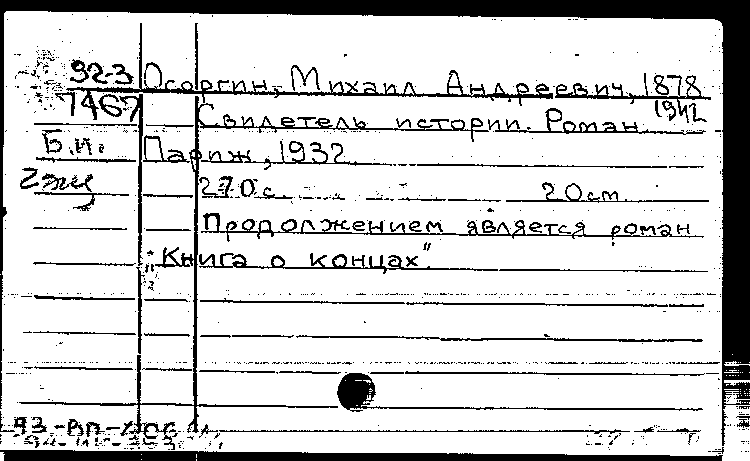 92-3 Осоргин, Михаил Андреевич, 1878
7467 Свидетель истории. Роман. 1942
Б.И. Париж, 1932.
2 экз 270 с. 20 cm.
Продолжением является роман
"Книга о концах".
93-ВП-